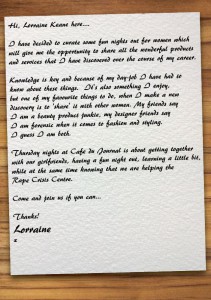 Hi, Lorraine Keane here....
I have decided to curate some fun nights out for women which
will give me the opportunity to share all the wonderful products
and services that I have discovered over the course of my career.
Knowledge is key and because of my day-job I have had to
know about these things. It's also something I enjoy,
but one of my favourite things to do, when I make a new
discovery is to 'share' it with other women. My friends say
I am a beauty product junkie, my designer friends say
I am forensic when it comes to fashion and styling.
I guess I am both.
Thursday nights at Café du Journal is about getting together
with our girlfriends, having a fun night out, learning a little bit,
while at the same time knowing that we are helping the
Rape Crisis Centre.
Come and join us if you can...
Thanks!
Lorraine
x